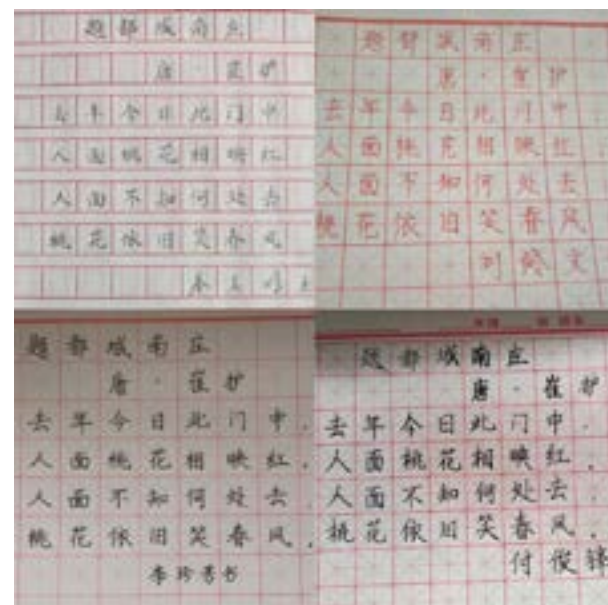 题都城南庄
唐·崔护
去年今日此门中
人面桃花相映红
人面不知何处去
桃花依旧笑春风
题都城南庄
唐·崔护
去年今日此门中,
人面桃花相映红
人面不知何处去
桃花依旧笑春风
刘
题都城南庄
唐·崔护
去年今日此门中,
人面桃花相映红,
人面不知何处去,
桃花依旧笑春风。
李珍秀书
题都城南庄
唐·崔护
去年今日此门中,
人面桃花相映红,
人面不知何处去,
桃花依旧笑春风。
付俊锋